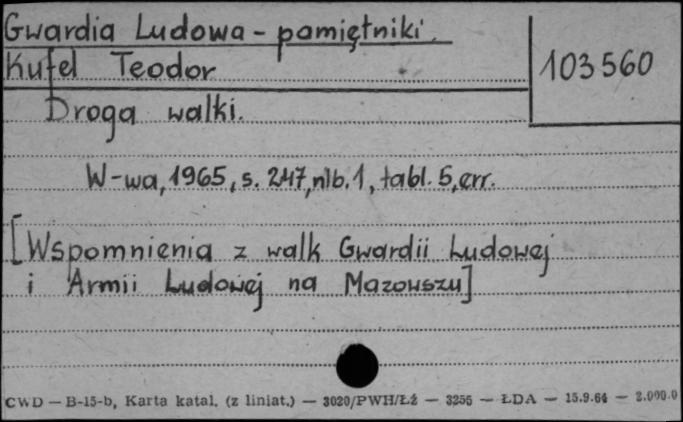 Gwardia Ludowa - pamiętniki.
Kufel Teodor
103560
Droga walki.
W-wa, 1965, s. 247, nlb. 1, tabl. 5, err.
[Wspomnienia z walk Gwardii Ludowej
i Armii Ludowej na Mazowszu]
CWD — B-15-b, Karta katal. (z liniat.) — 3020/PWH/ŁŻ — 3256 — ŁDA — 15.9.64 — 2.000.0